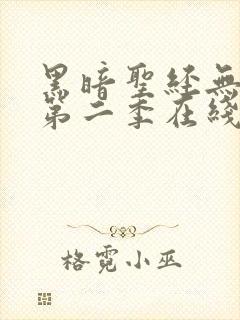 黑暗聖經無
第二季在綫
格霓小巫